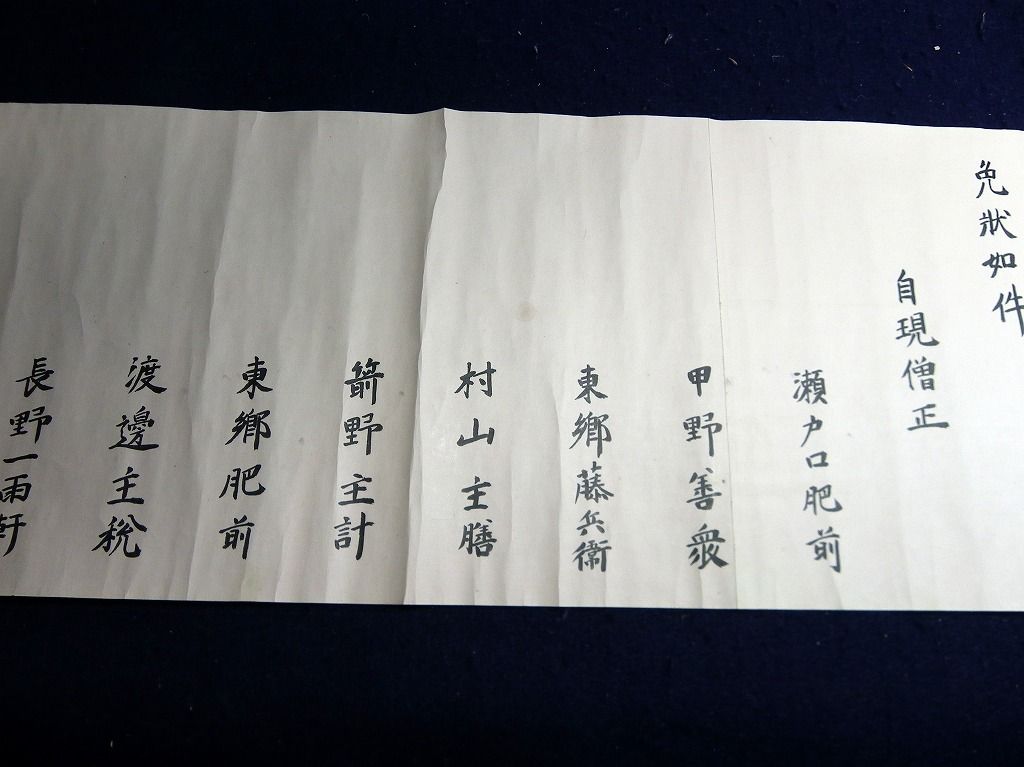 免狀如件
自現僧正
瀬戸口肥前
甲野善衆
東鄉藤兵衞
村山主膳
箭野主計
東鄉肥前
渡邊主稅
長野一雨軒